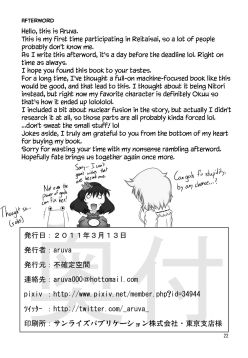 AFTERWORD
Hello, this is Aruva.
This is my first time participating in Reitaisai, so a lot of people
probably don't know me.
As I write this afterword, it's a day before the deadline lol. Right on
time as always.
I hope you found this book to your tastes.
For a long time, I've thought a full-on machine-focused book like this
would be good, and that lead to this. I thought about it being Nitori
instead, but right now my favorite character is definitely Okuu so
that's how it ended up lolololol.
I included a bit about nuclear fusion in the story, but actually I didn't
research it at all, so those parts are all probably kinda forced lol.
...don't sweat the small stuff! lol
Jokes aside, I truly am grateful to you from the bottom of my heart
for buying my book.
Sorry for wasting your time with my nonsense rambling afterword.
Hopefully fate brings us together again once more.
Thought so...
(sobs)
Not even the
power of gods
can fix her!
Sorry... I can't
heal
奥付
発行日：２０１１年３月１３日
発行者：aruva
発行元：不確定空間
連絡先：aruva000@hottomail.com
pixiv ：http://www.pixiv.net/member.php?id=34944
ﾂｲｯﾀｰ ：http://twitter.com/_aruva_
印刷所：サンライズパブリケーション株式会社・東京支店様
22